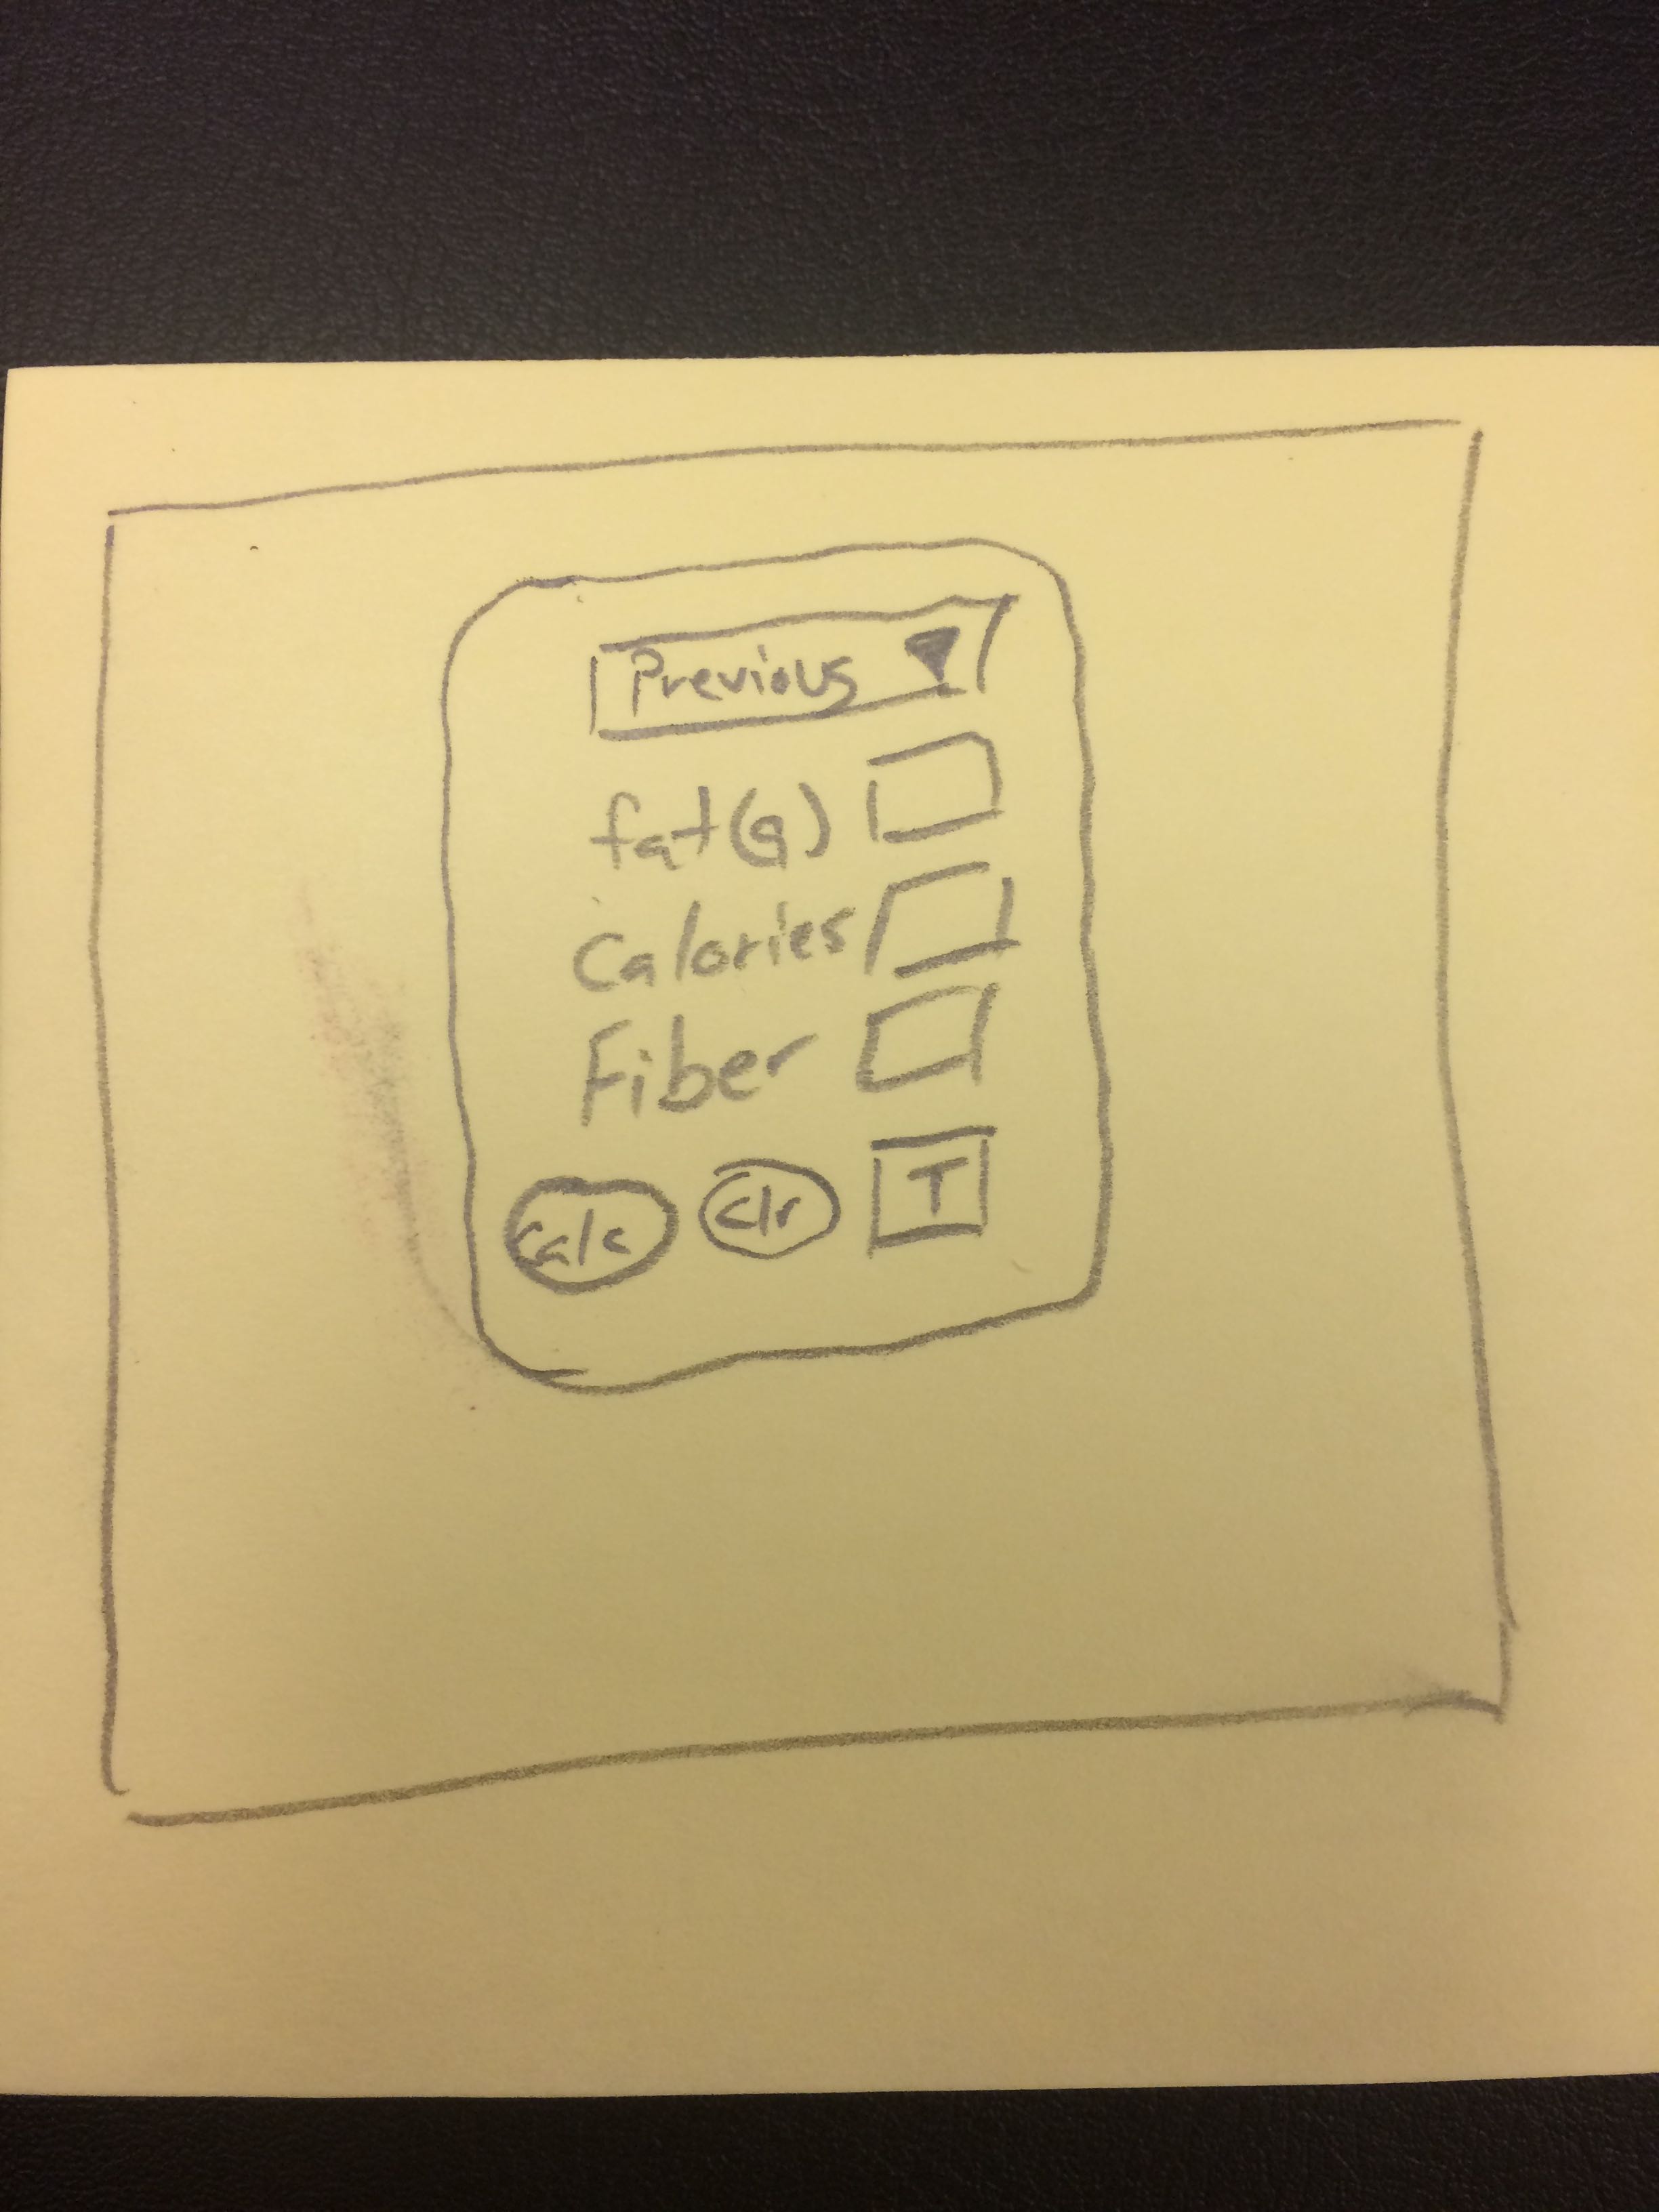 Previous
fat(g)
Calories
Fiber
Calc Clr T